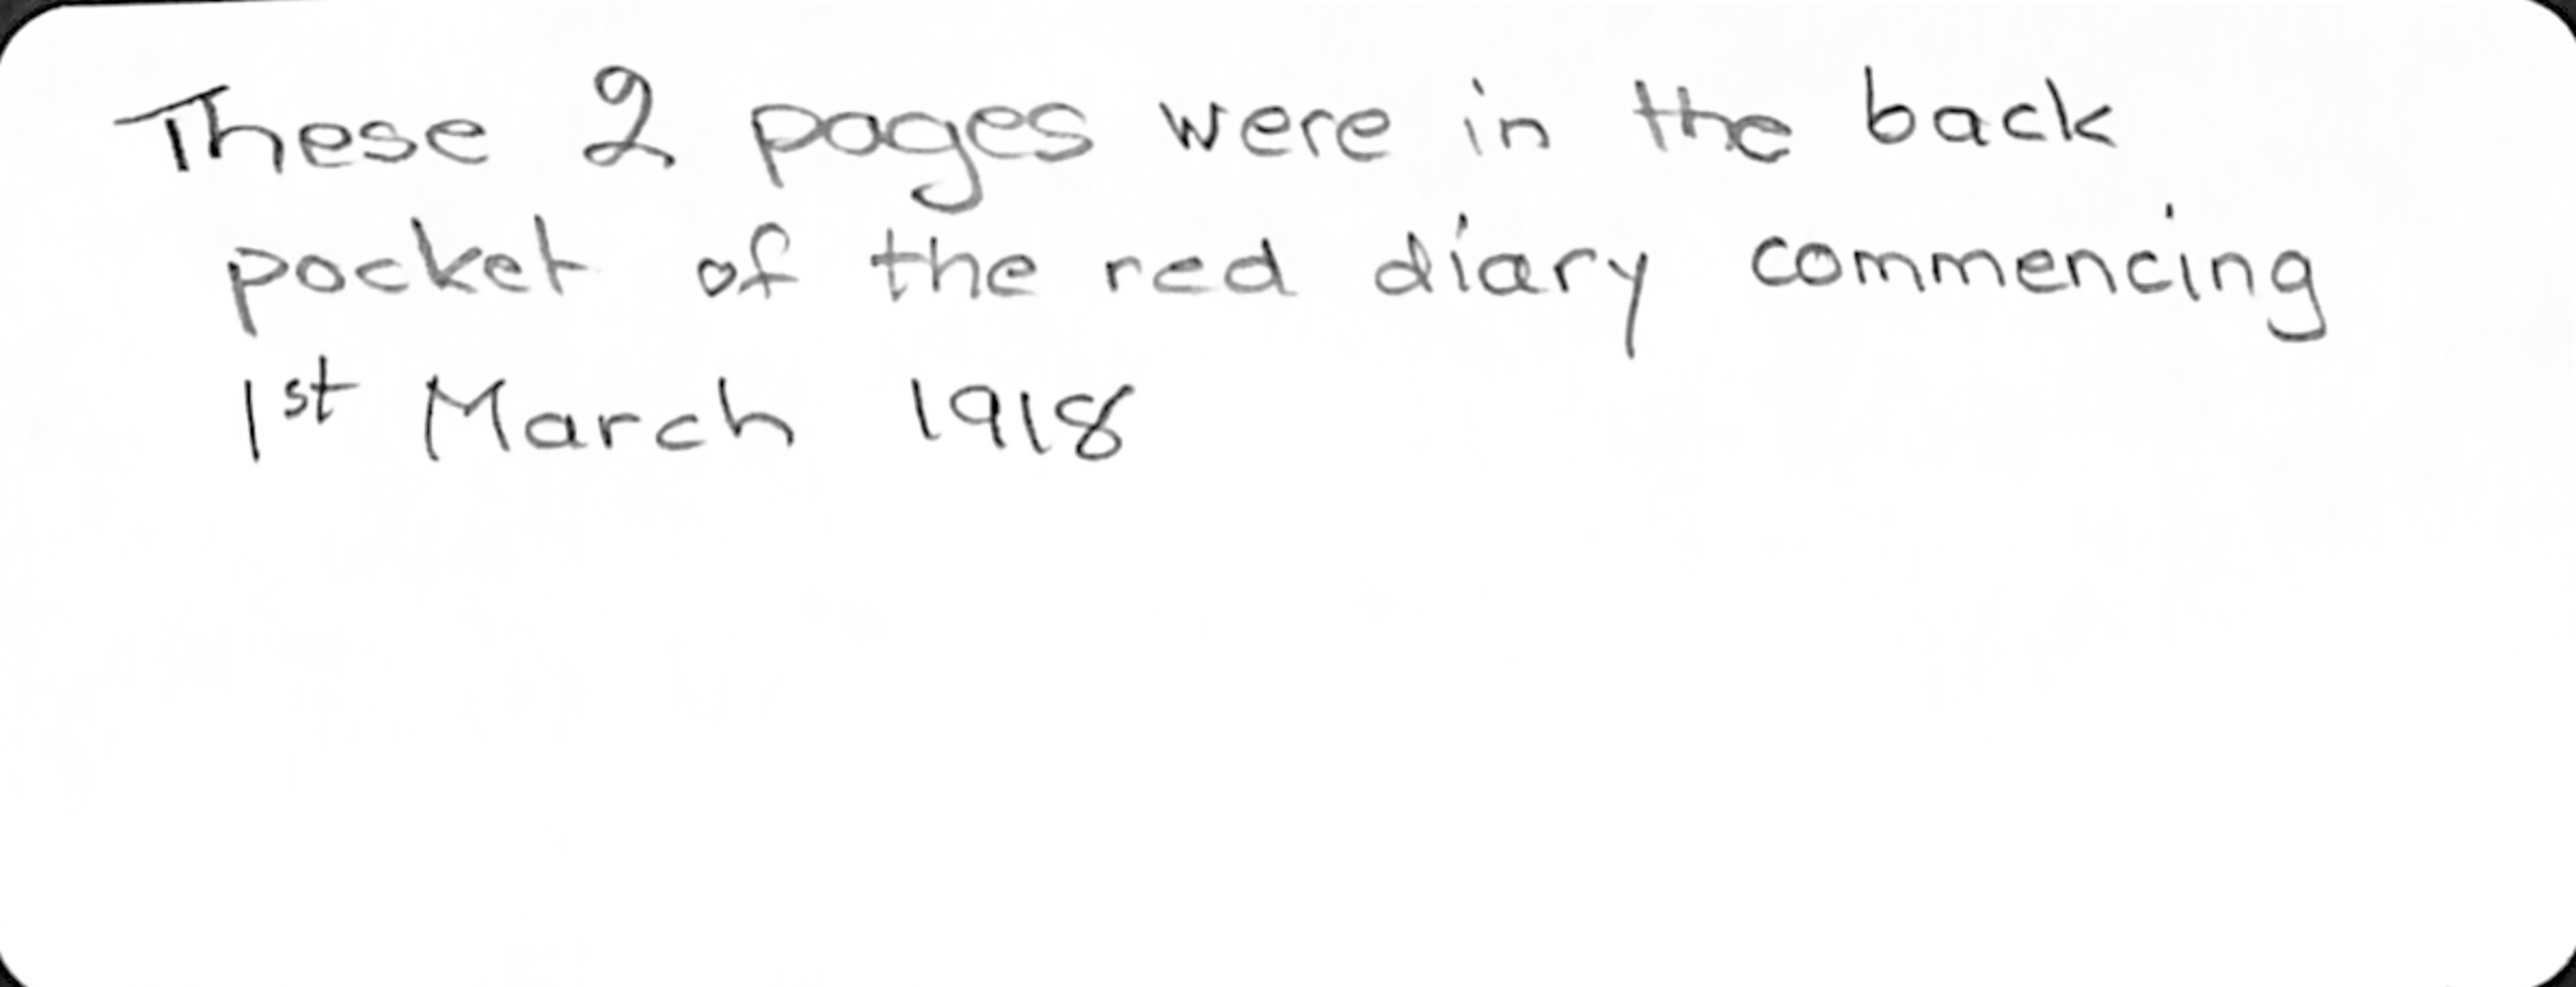 These 2 pages were in the back
pocket of the red diary commencing
1st March 1918